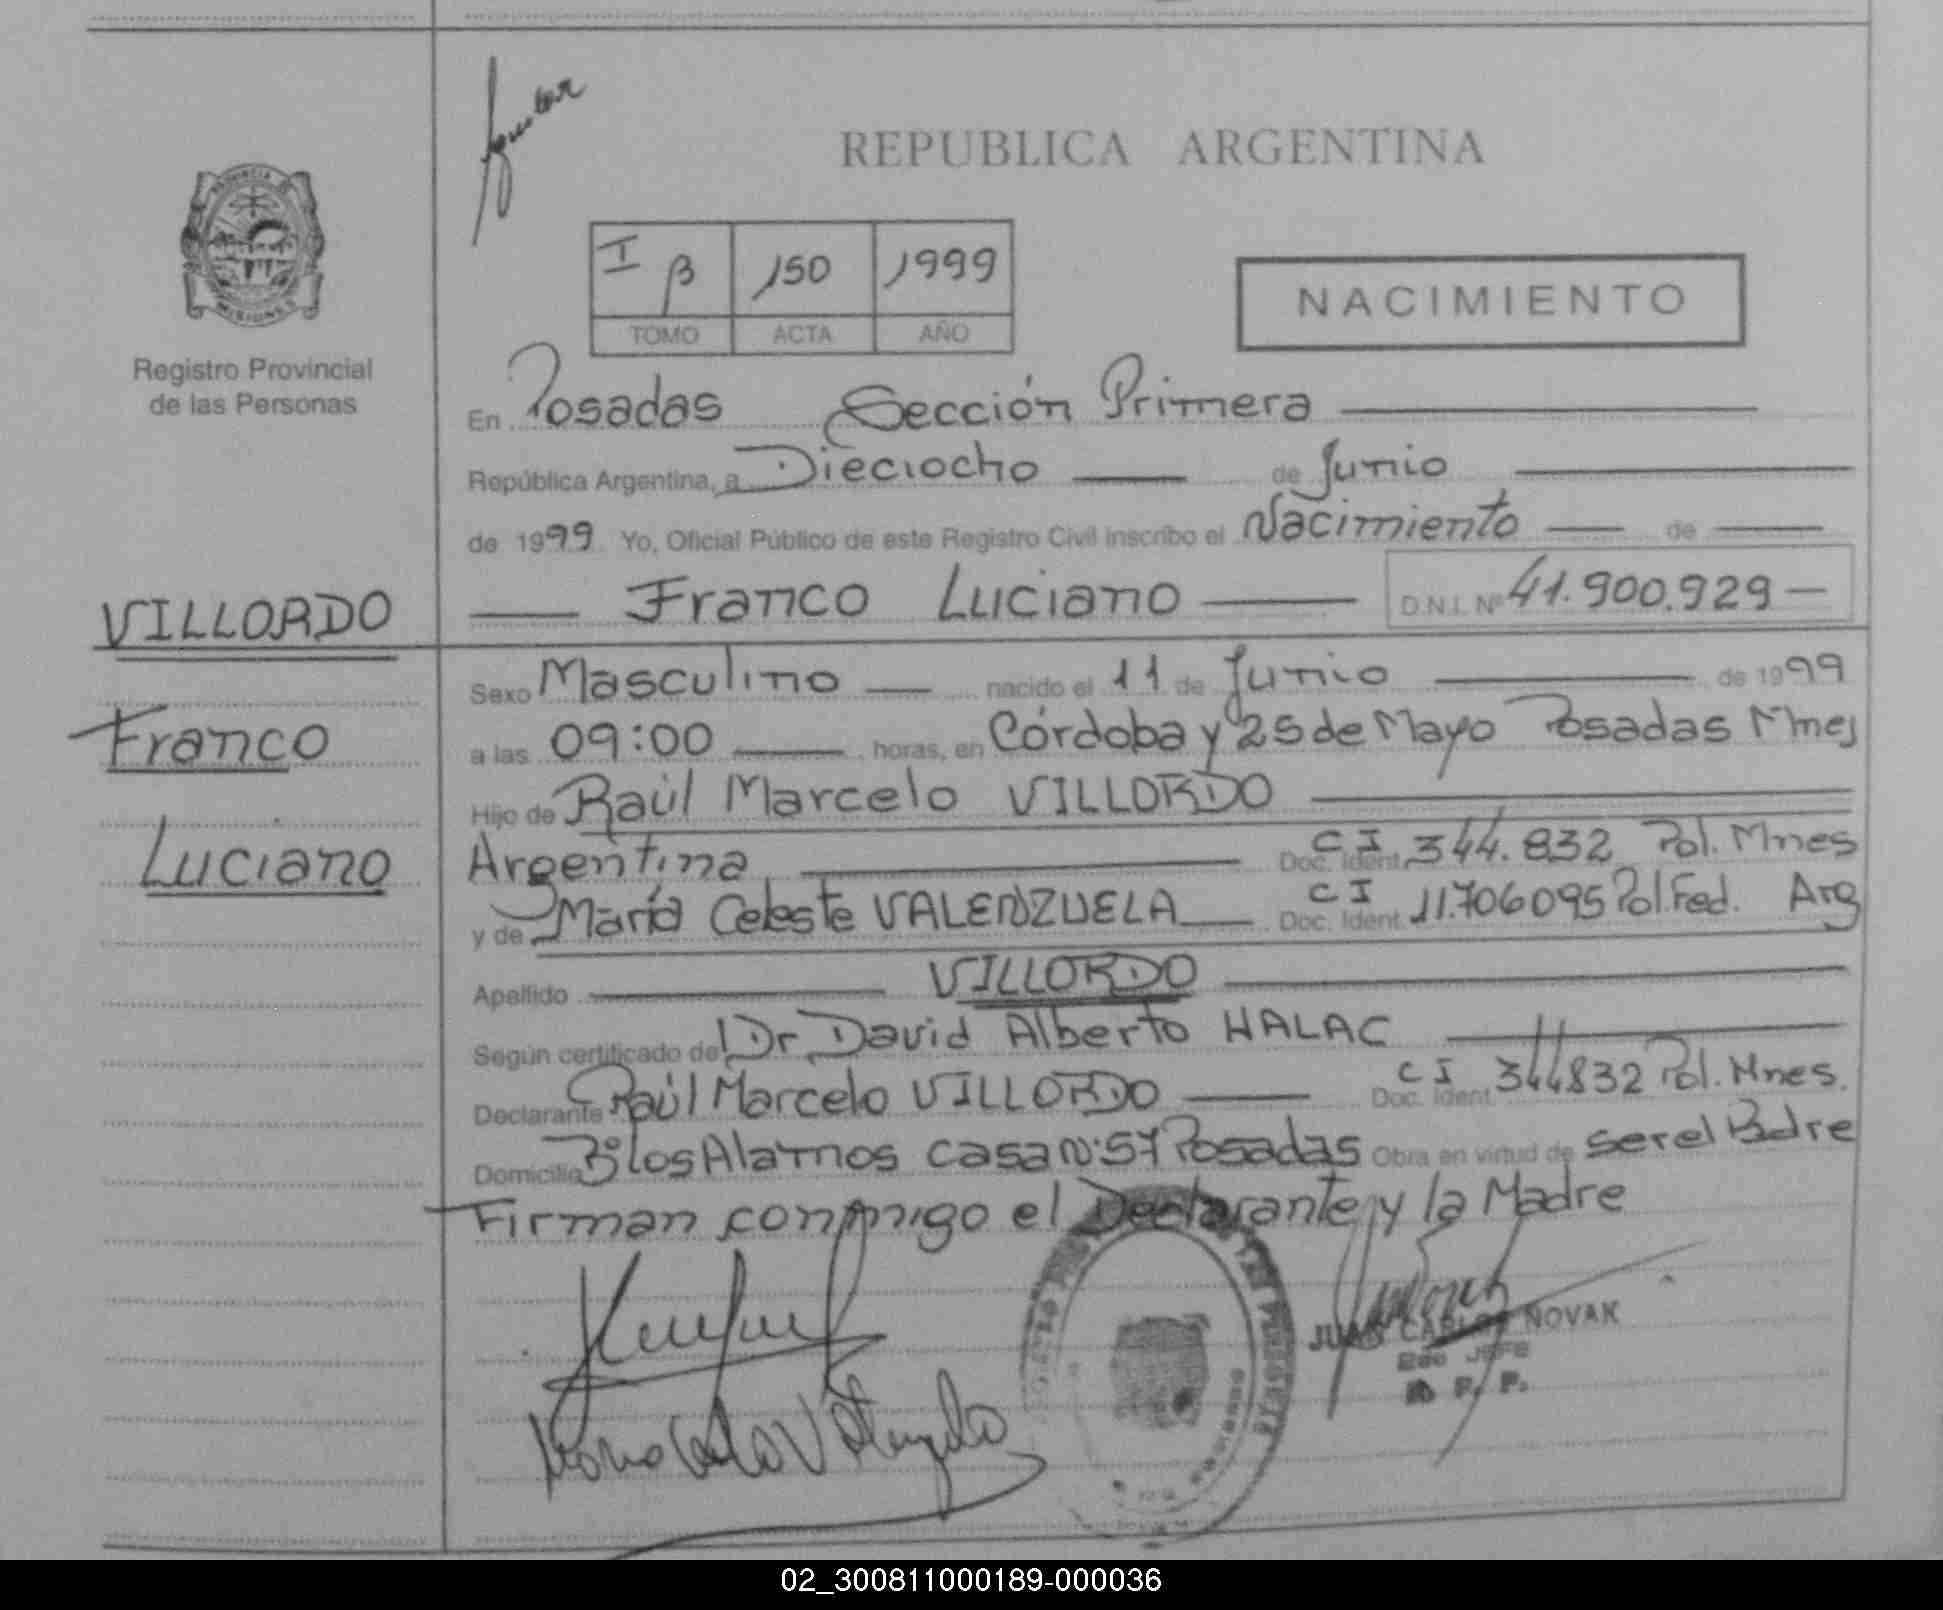 REPUBLICA ARGENTINA
PROVINCIA DE
MISIONES
Registro Provincial
de las Personas
I B 150 1999
TOMO ACTA AÑO
NACIMIENTO
En Posadas Sección Primera
República Argentina, a Dieciocho de Junio
de 1999 Yo, Oficial Público de este Registro Civil inscribo el Nacimiento de
Franco Luciano D.N.I. Nº 41.900.929
VILLORDO
Franco
Luciano
Sexo Masculino nacido el 11 de Junio de 1999
a las 09:00 horas, en Córdoba y 25 de Mayo Posadas Mnes
Hijo de Raúl Marcelo VILLORDO
Argentina Doc. Ident. CI 344.832 Pol. Mnes
y de María Celeste VALENZUELA Doc. Ident. CI 11.706095 Pol. Fed. Arg
Apellido VILLORDO
Según certificado de Dr David Alberto HALAC
Declarante Raúl Marcelo VILLORDO Doc. Ident. CI 344832 Pol. Mnes.
Domicilio Bº los Alamos casa Nº 57 Posadas Obra en virtud de ser el Padre
Firman conmigo el Declarante y la Madre
JUAN CARLOS NOVAK
2do JEFE
R. P. P.
02_300811000189-000036